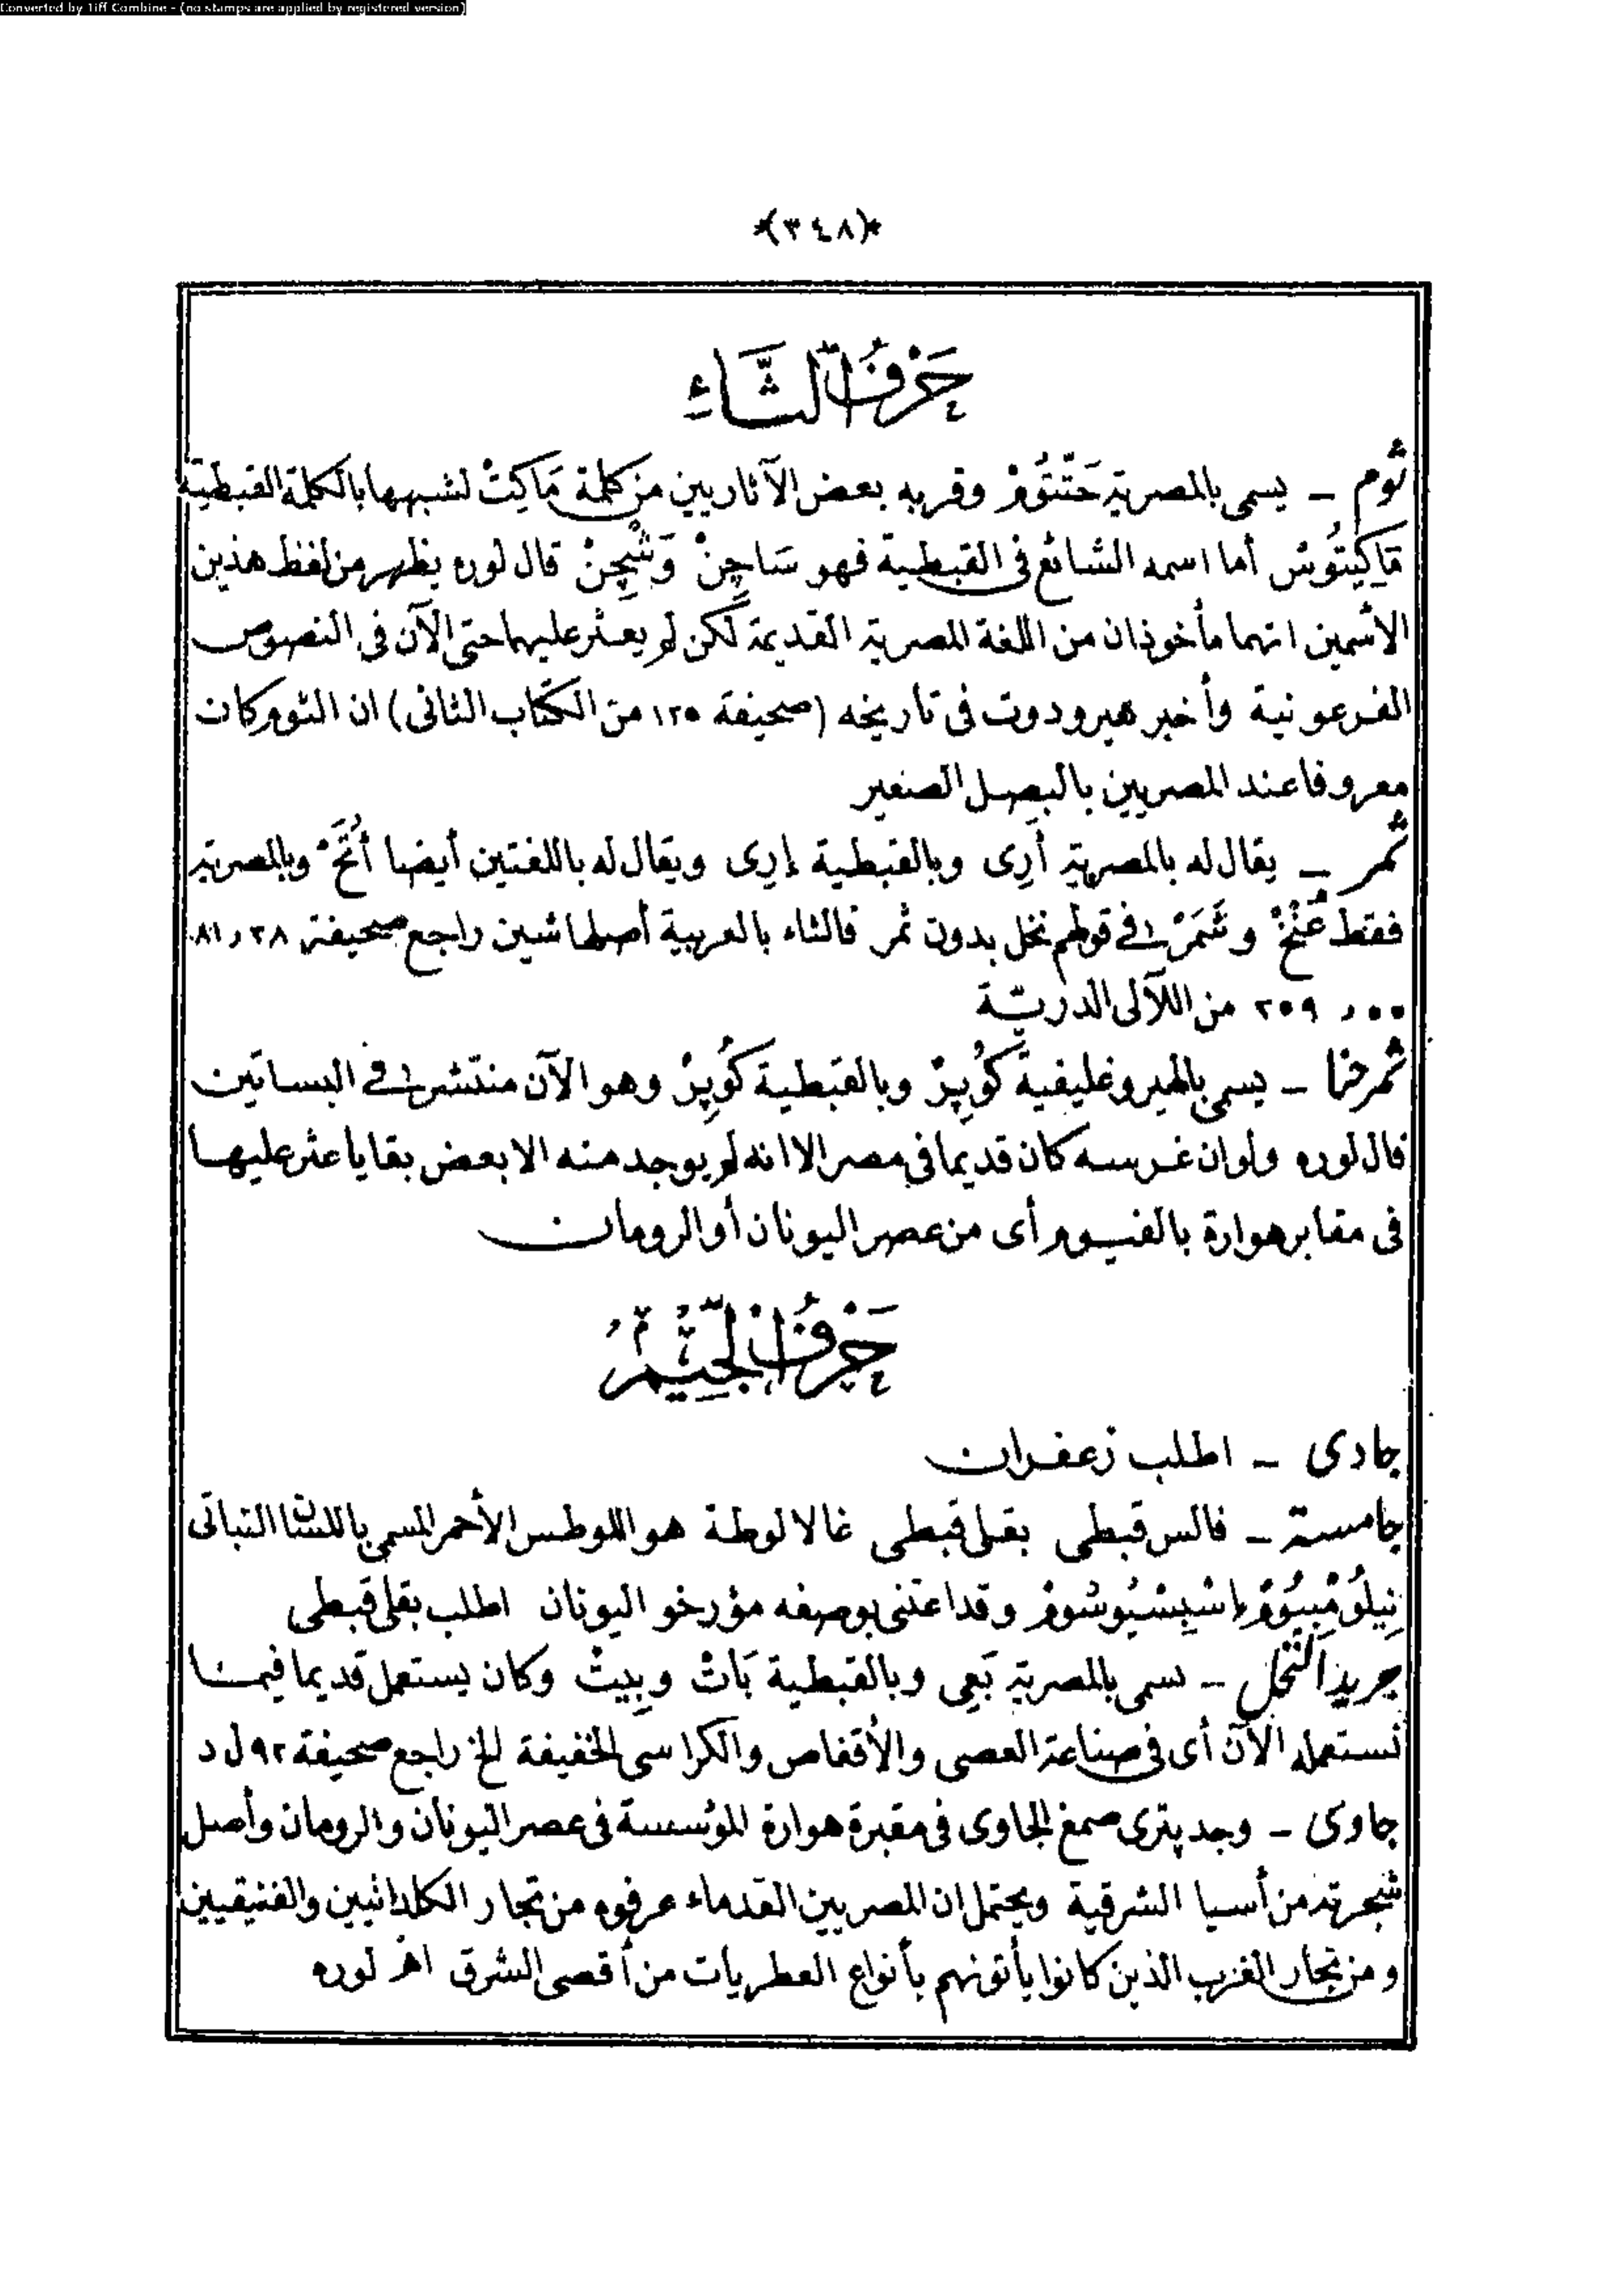 Converted by Tiff Combine - (no stamps are applied by registered version)
*(٣٤٨)*
حَرْفُ الثَّاءِ
ثوم ـ يسمى بالمصرية حَتْتُومْ وقربه بعض الآثاريين من كلمة مَاكِتْ لشبهها بالكلمة القبطية
مَاكِيتُوسْ أما اسمه الشائع فى القبطية فهو سَاچِنْ وَشْچِنْ قال لوره يظهر من لفظ هذين
الاسمين انهما مأخوذان من اللغة المصرية القديمة لكن لم يعثر عليهما حتى الآن فى النصوص
الفرعونية وأخبر هيرودوت فى تاريخه (صحيفة ١٢٥ من الكتاب الثانى) ان الثوم كان
معروفا عند المصريين بالبصل الصغير
ثمر ـ يقال له بالمصرية أَرِى وبالقبطية إِرِى ويقال له باللغتين أيضا أُتَّحْ وبالمصرية
فقط عُنْخْ وشَمَرْ فى قولهم نخل بدون ثمر فالثاء بالعربية أصلها شين راجع صحيفة ٣٨ و ٨١
٠٠٠ و ٢٥٩ من اللآلى الدرية
ثمر حنا ـ يسمى بالهيروغليفية كُوبِرْ وبالقبطية كُوبِرْ وهو الآن منتشر فى البساتين
قال لوره ولو ان غرسه كان قديما فى مصر الا انه لم يوجد منه الا بعض بقايا عثر عليها
فى مقابر هوارة بالفيوم أى من عصر اليونان أو الرومان
حَرْفُ الْجِيْمِ
جادى ـ اطلب زعفران
جامسة ـ فالس قبطى بقلى قبطى غالا لوطة هو اللوطس الأحمر المسمى باللسان النباتى
نِيلُومْبِيُومْ اسْپِسْيُوسُومْ وقد اعتنى بوصفه مؤرخو اليونان اطلب بقلى قبطى
جريد النخل ـ يسمى بالمصرية بَعِى وبالقبطية بَاتْ وبِيتْ وكان يستعمل قديما فيما
نستعمله الآن أى فى صناعة العصى والأقفاص والكراسى الخفيفة الخ راجع صحيفة ٩٢ ل د
جاوى ـ وجد پترى صمغ الجاوى فى مقبرة هوارة المؤسسة فى عصر اليونان والرومان وأصل
شجرته من أسيا الشرقية ويحتمل ان المصريين القدماء عرفوه من تجار الكلدانيين والفنيقيين
ومن تجار العرب الذين كانوا يأتونهم بأنواع العطريات من أقصى الشرق اه لوره